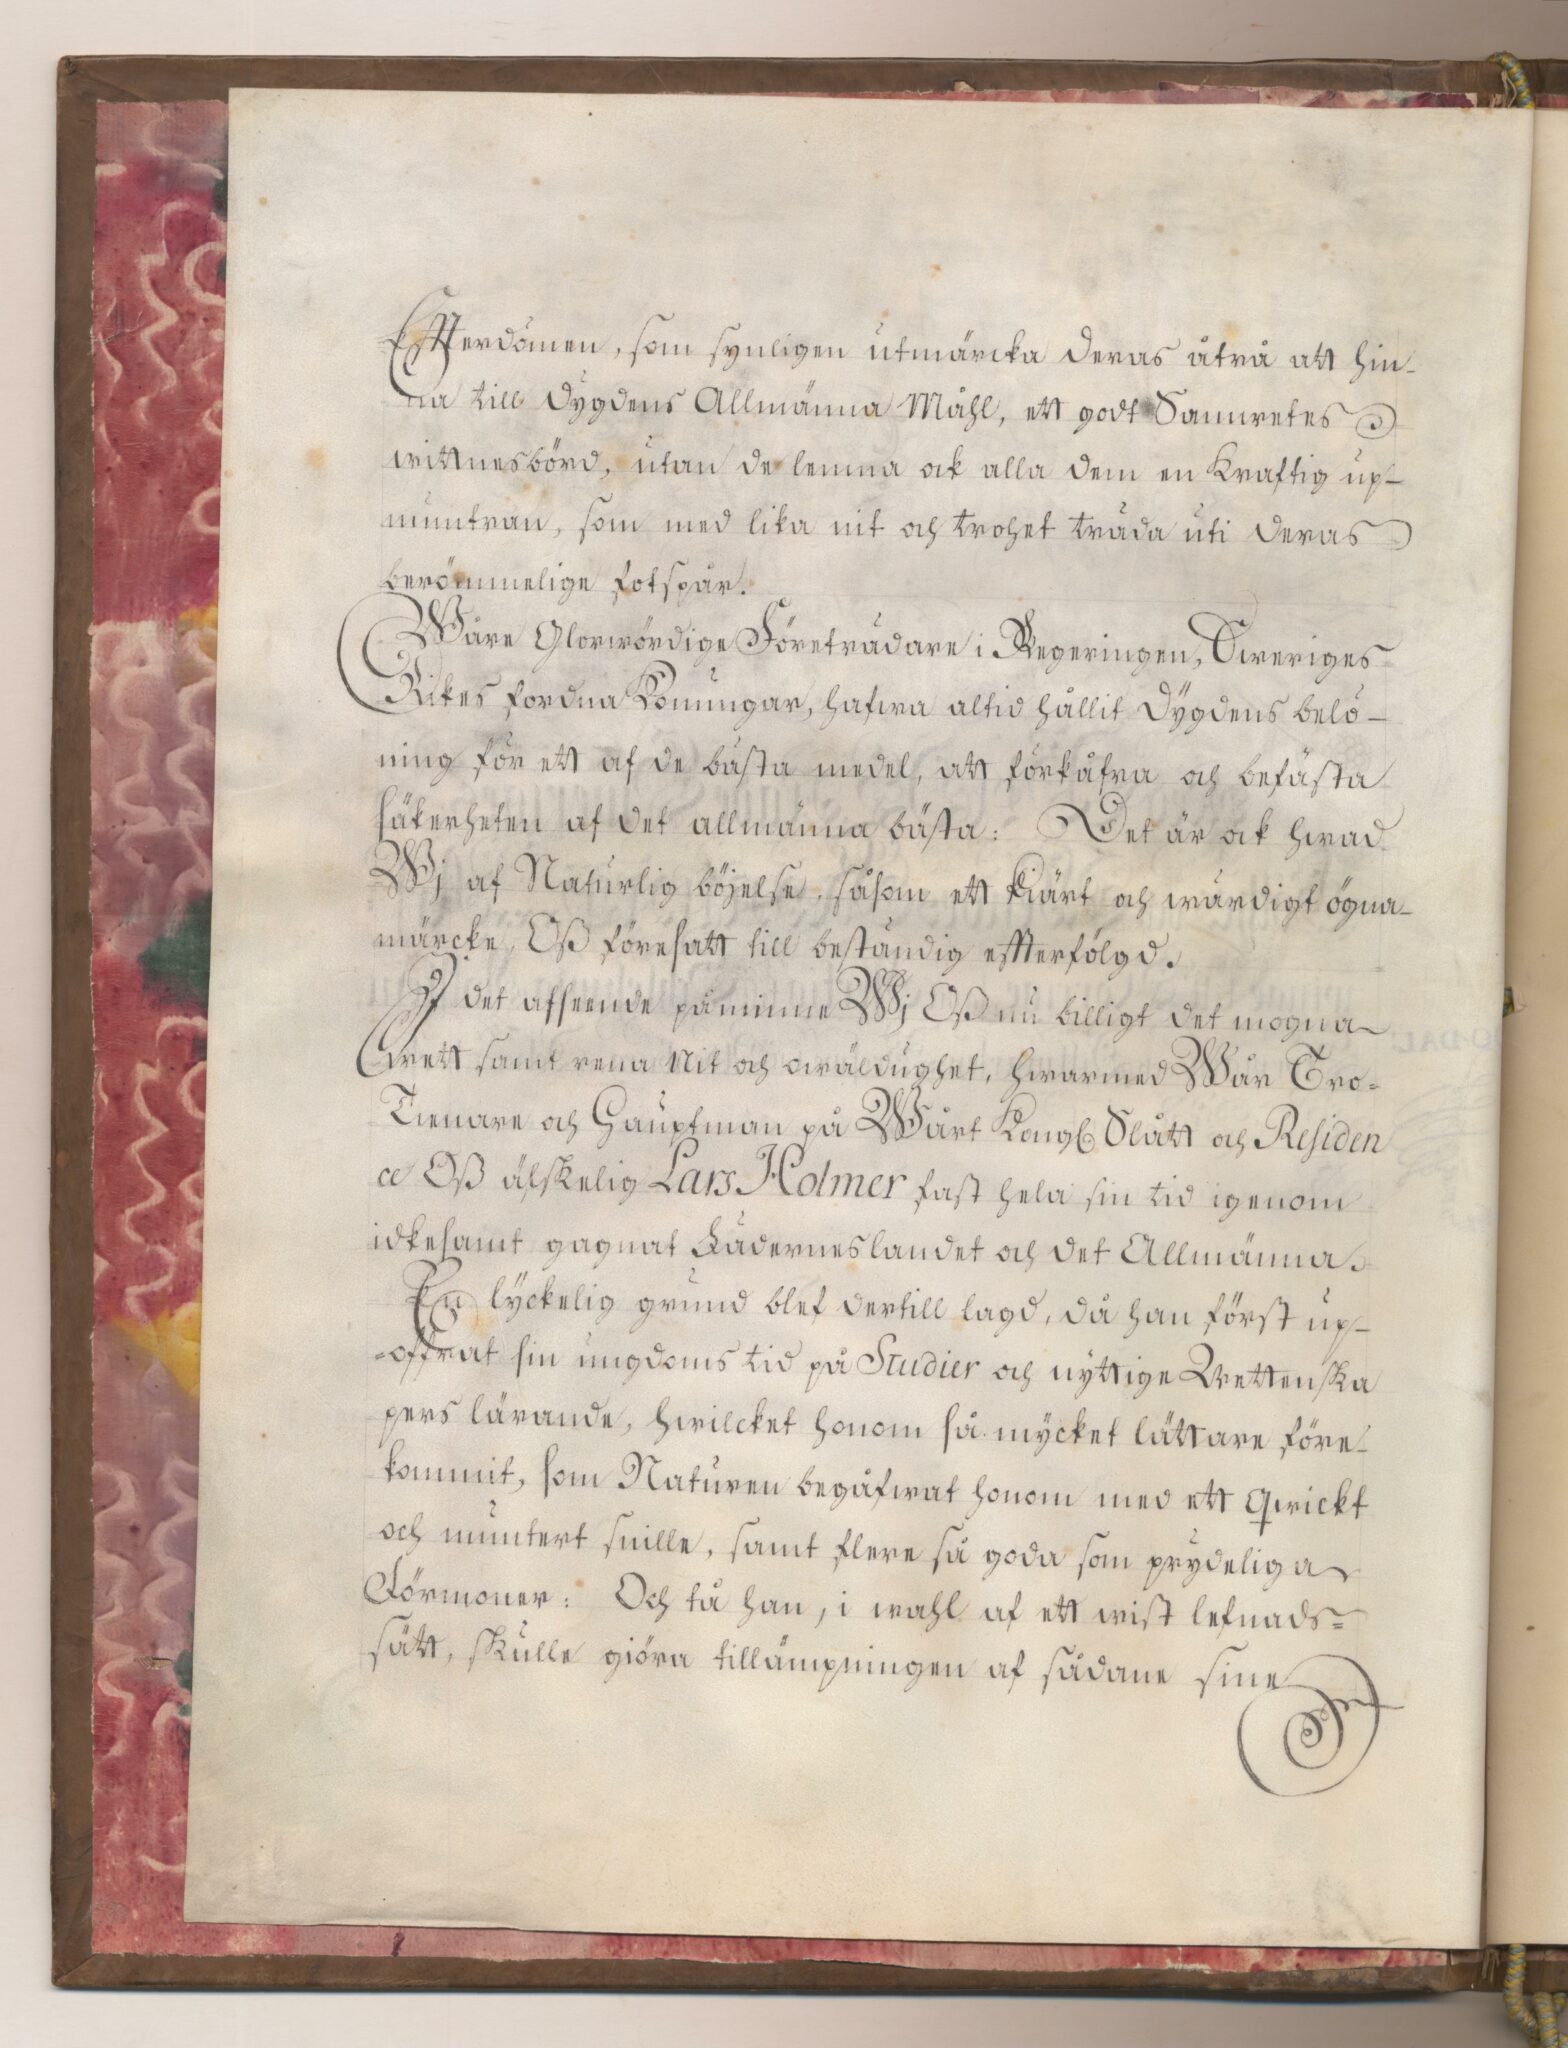 Efterdömen, som synligen utmärcka deras åtrå att hin-
na till dygdens Allmänna Måhl, ett godt Samwetes
wittnesbörd, utan de lemna ock alla dem en kraftig up-
muntran, som med lika nit och trohet träda uti deras
berömmelige fotspår.
Wåre Glorwördige Företrädare i Regeringen, Sweriges
Rikes fordna Konungar, hafwa altid hållit dygdens belö-
ning för ett af de bästa medel, att förkåfra och befästa
säkerheten af det allmänna bästa: Det är ock hwad
Wj af Naturlig böjelse, såsom ett kiärt och wärdigt ögna-
märcke, Oß föresatt till beständig effterfölgd.
I det afseende påminne Wj Oß nu billigt det mogna
wett samt rena Nit och owäldughet, hwarmed Wår Tro-
Tienare och Hauptman på Wårt Kongl Slått och Residen
ce Oß älskelig Lars Holmer fast hela sin tid igenom
idkesamt gagnat Fäderneslandet och det Allmänna.
En lyckelig grund blef dertill lagd, då han först up-
-offrat sin ungdoms tid på Studier och nyttige Wettenska
pers lärande, hwilcket honom så mycket lättare före-
kommit, som Naturen begåfwat honom med ett qwickt
och muntert snille, samt flere så goda som prydeliga
Förmoner: Och tå han, i wahl af ett wist lefnads-
sätt, skulle giöra tillämpningen af sådane sine